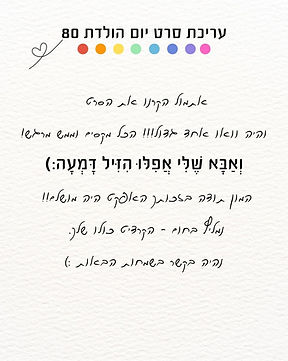 עריכת סרט יום הולדת 80
אתמול הקרנו את הסרט
והיה וואו אחד גדול!!! הכל מקסים וממש מרגש!
וְאַבָּא שֶׁלִּי אֲפִלּוּ הִזִּיל דִּמְעָה:)
המון תודה בזכותך האפקט היה מושלם!!
נמליץ בחום - הקרדיט כולו שלך.
נהיה בקשר בשמחות הבאות :)